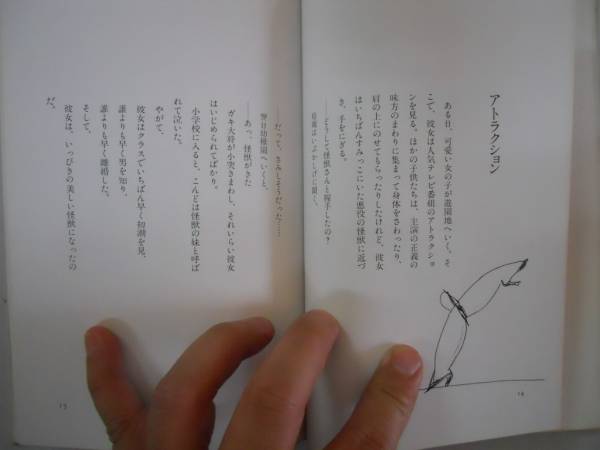 アトラクション
ある日、可愛い女の子が遊園地へいく。そ
こで、彼女は人気テレビ番組のアトラクショ
ンを見る。ほかの子供たちは、主演の正義の
味方のまわりに集まって身体をさわったり、
肩の上にのせてもらったりしたけれど、彼女
はいちばんすみっこにいた悪役の怪獣に近づ
き、手をにぎる。
——どうして怪獣さんと握手したの?
母親はいぶかしげに聞く。
——だって、さみしそうだった……
翌日幼稚園へいくと、
——あっ、怪獣がきた
ガキ大将が小突きまわし、それいらい彼女
はいじめられてばかり。
小学校に入ると、こんどは怪獣の妹と呼ば
れて泣いた。
やがて、
彼女はクラスでいちばん早く初潮を見、
誰よりも早く男を知り、
誰よりも早く離婚した。
そして、
彼女は、いっぴきの美しい怪獣になったの
だ。
14
15